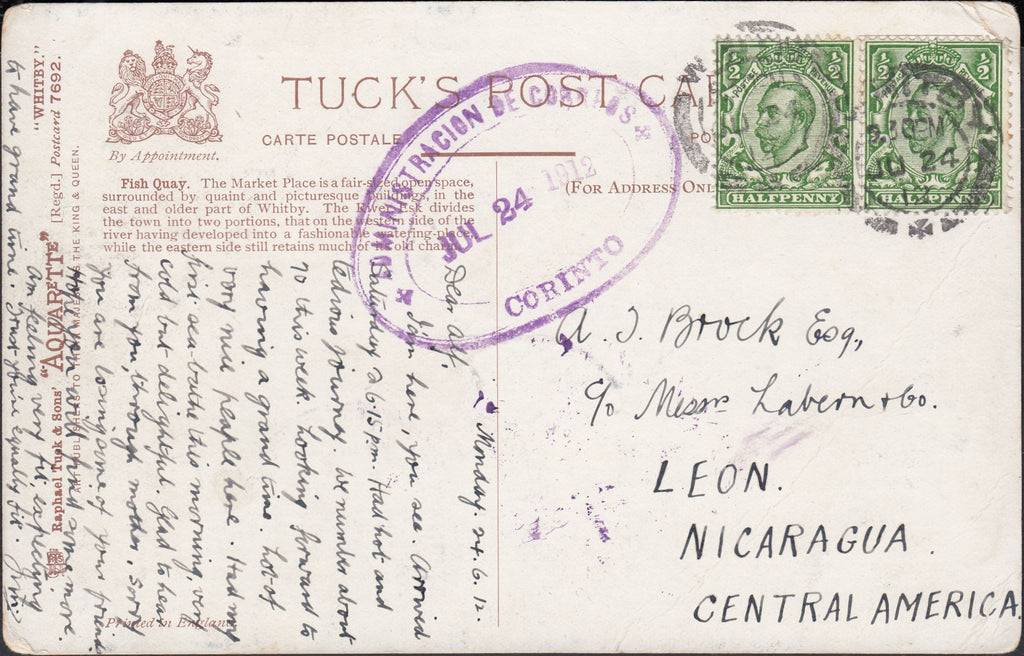 TUCK'S POST CAR
CARTE POSTALE
By Appointment.
"WHITBY."
[Regd.] Postcard 7692.
Raphael Tuck & Sons' "AQUARETTE"
ART PUBLISHERS TO THE KING & QUEEN.
Fish Quay. The Market Place is a fair-sized open space,
surrounded by quaint and picturesque buildings, in the
east and older part of Whitby. The River Esk divides
the town into two portions, that on the western side of the
river having developed into a fashionable watering-place,
while the eastern side still retains much of its old charm.
(FOR ADDRESS ONL
Printed in England
½ ½
POSTAGE REVENUE
HALFPENNY
½ ½
HALFPENNY
JU 24
12
ADMINISTRACION DE CORREOS
JUL 24 1912
CORINTO
A. J. Brock Esq,
c/o Messrs Labern & Co.
LEON.
NICARAGUA.
CENTRAL AMERICA
Monday. 24.6.12.
Dear Alf,
I am here, you see. Arrived
Saturday 26.15 p.m. Had hot and
tedious journey. We number about
70 this week. Looking forward to
having a grand time. Lot of
very nice people here. Had my
first sea-bathe this morning, very
cold but delightful. Glad to hear
from you, through mother, sorry
you are losing some of your friends
some more.
Am feeling very fit expecting
to have grand time. Trust you're equally fit. Jim